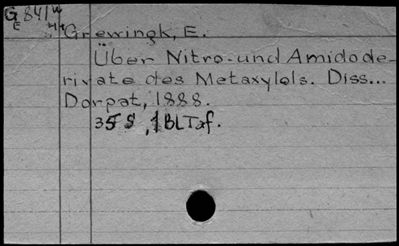 G 841
E
Grewingk, E.
Über Nitro- und Amidode-
rivate des Metaxylols. Diss...
Dorpat, 1888.
35 S, 1 Bl Taf.